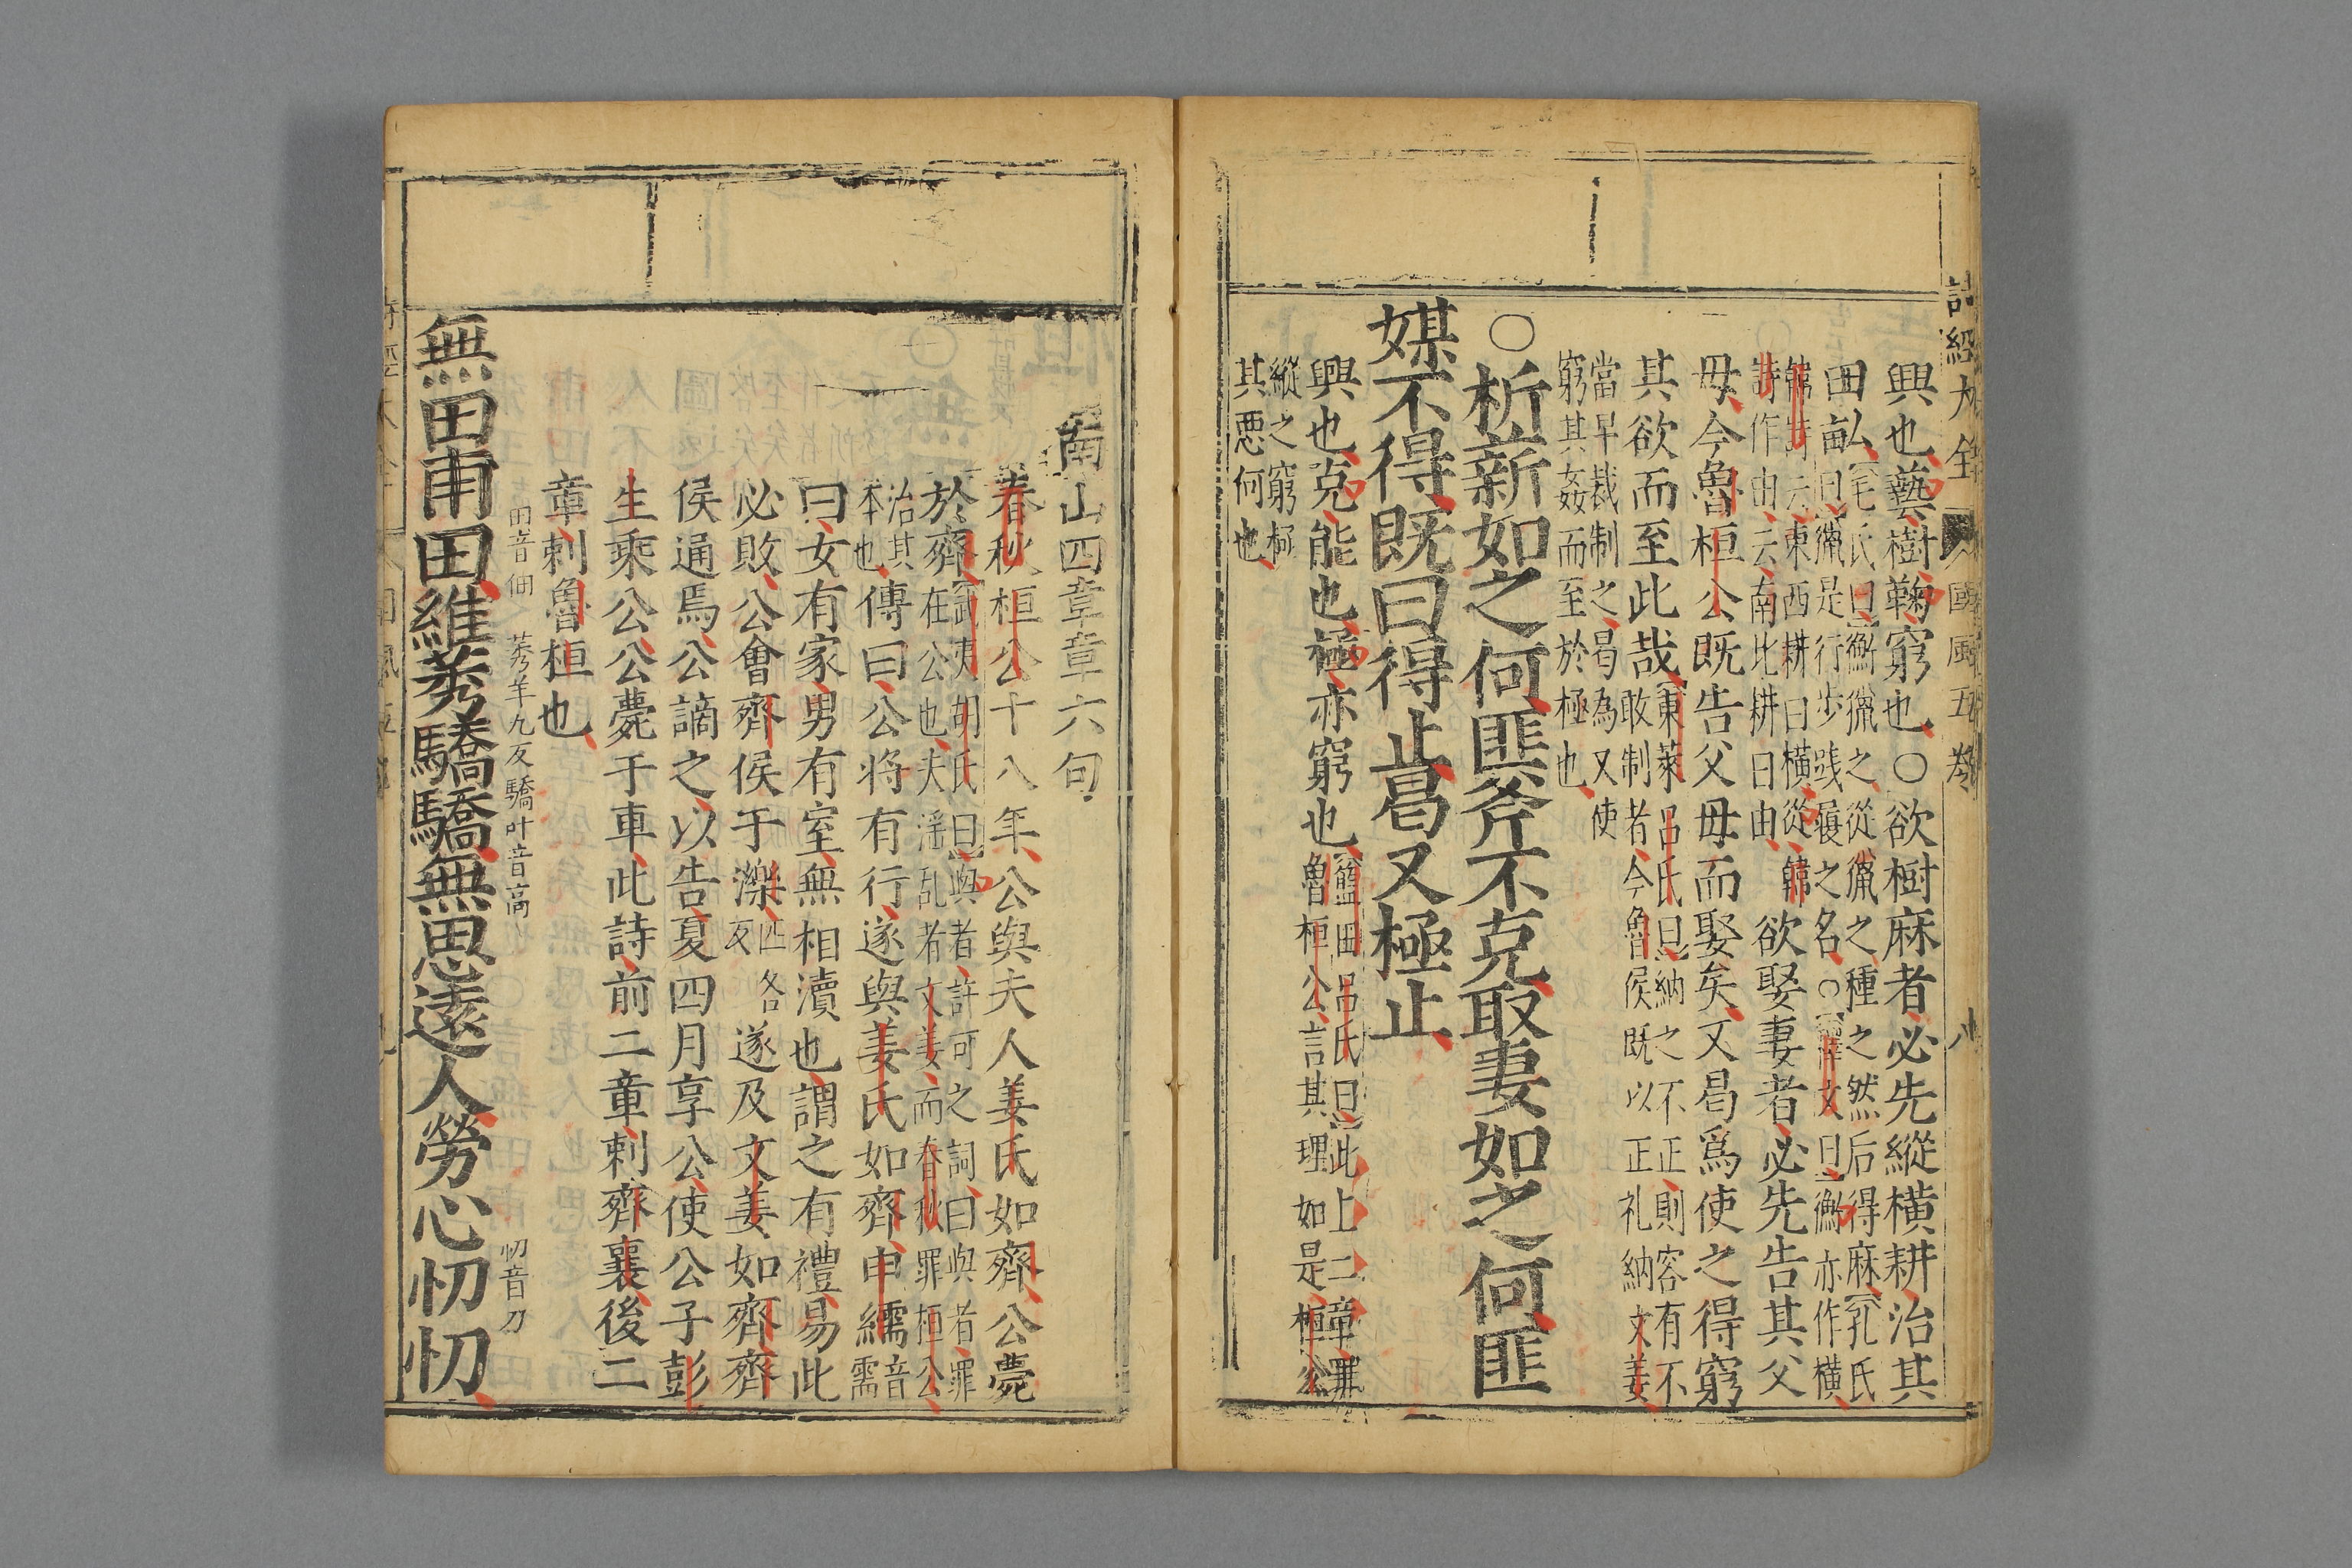 詩經大全 國風五卷 八
興也藝樹鞠窮也○欲樹麻者必先縱橫耕治其
田畝【毛氏曰】衡獵之從獵之種之然后得麻【孔氏
曰】獵是行步踐履之名○【釋文曰】衡亦作橫
韓詩云東西耕曰橫從韓
詩作由云南北耕曰由 欲娶妻者必先告其父
母今魯桓公既告父母而娶矣又曷爲使之得窮
其欲而至此哉【東萊呂氏曰】納之不正則容有不
敢制者今魯侯既以正礼納文姜
當早裁制之曷為又使
窮其姦而至於極也
○析薪如之何匪斧不克取妻如之何匪
媒不得既曰得止曷又極止
興也克能也極亦窮也【藍田呂氏曰】此上二章罪
魯桓公言其理如是桓公
縱之窮極
其悪何也
南山四章章六句
春秋桓公十八年公與夫人姜氏如齊公薨
於齊【武夷胡氏曰】與者許可之詞曰與者罪
在公也夫淫乱者文姜而春秋罪桓公
治其
本也 傳曰公將有行遂與姜氏如齊申繻音
需
曰女有家男有室無相瀆也謂之有禮易此
必敗公會齊侯于濼匹各
反 遂及文姜如齊齊
侯通焉公謫之以告夏四月享公使公子彭
生乘公公薨于車此詩前二章刺齊襄後二
章刺魯桓也
無田甫田維莠驕驕無思遠人勞心忉忉
田音佃 莠羊九反 驕叶音高 忉音刀